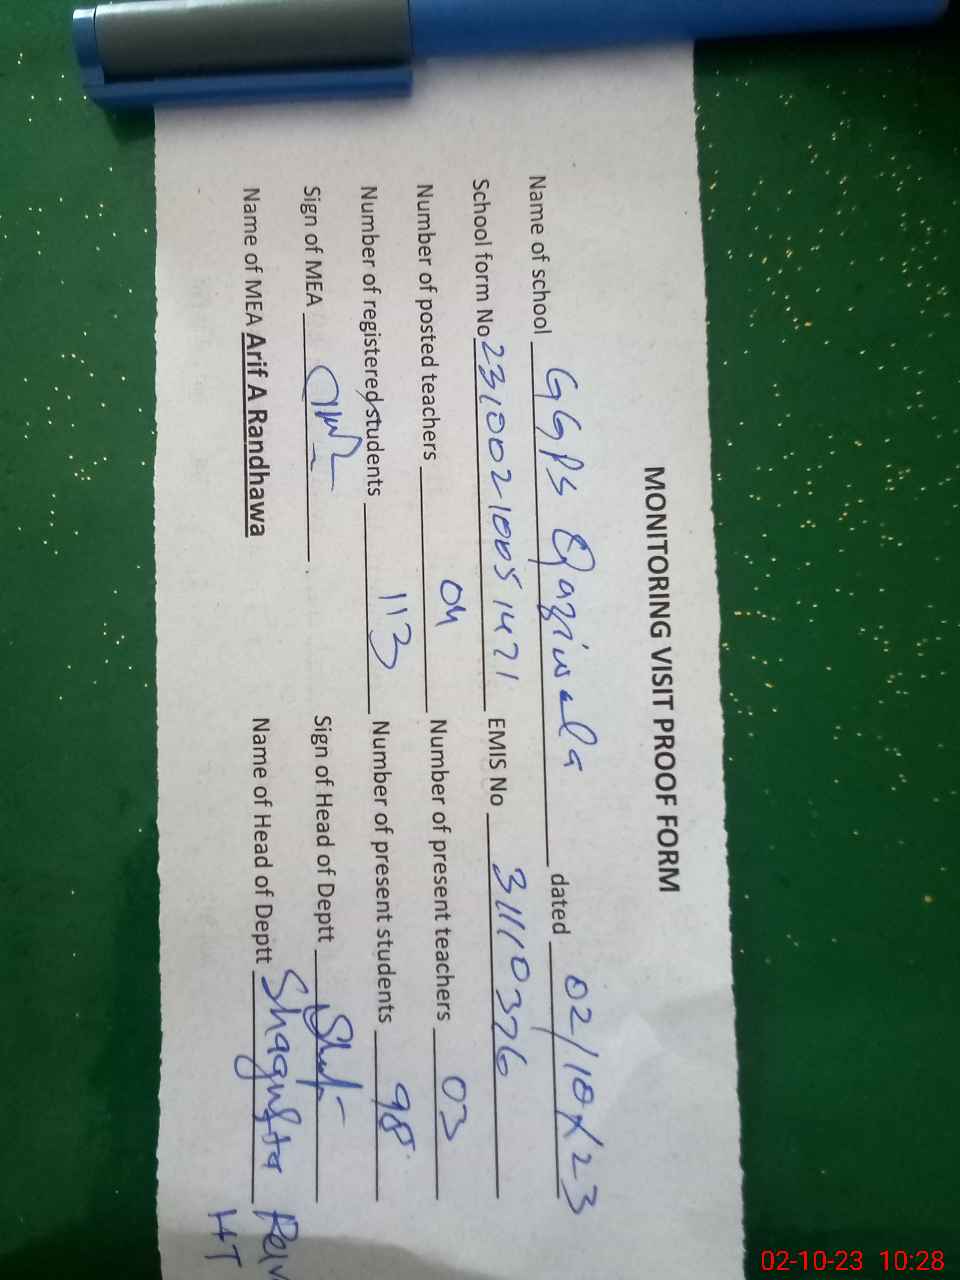 MONITORING VISIT PROOF FORM
Name of school GGPS Qaziwala dated 02/10/23
School form No 23100210051471 EMIS No 31110376
Number of posted teachers 04 Number of present teachers 03
Number of registered students 113 Number of present students 98
Sign of MEA Sign of Head of Deptt
Name of MEA Arif A Randhawa Name of Head of Deptt Shagufta
HT
02-10-23 10:28